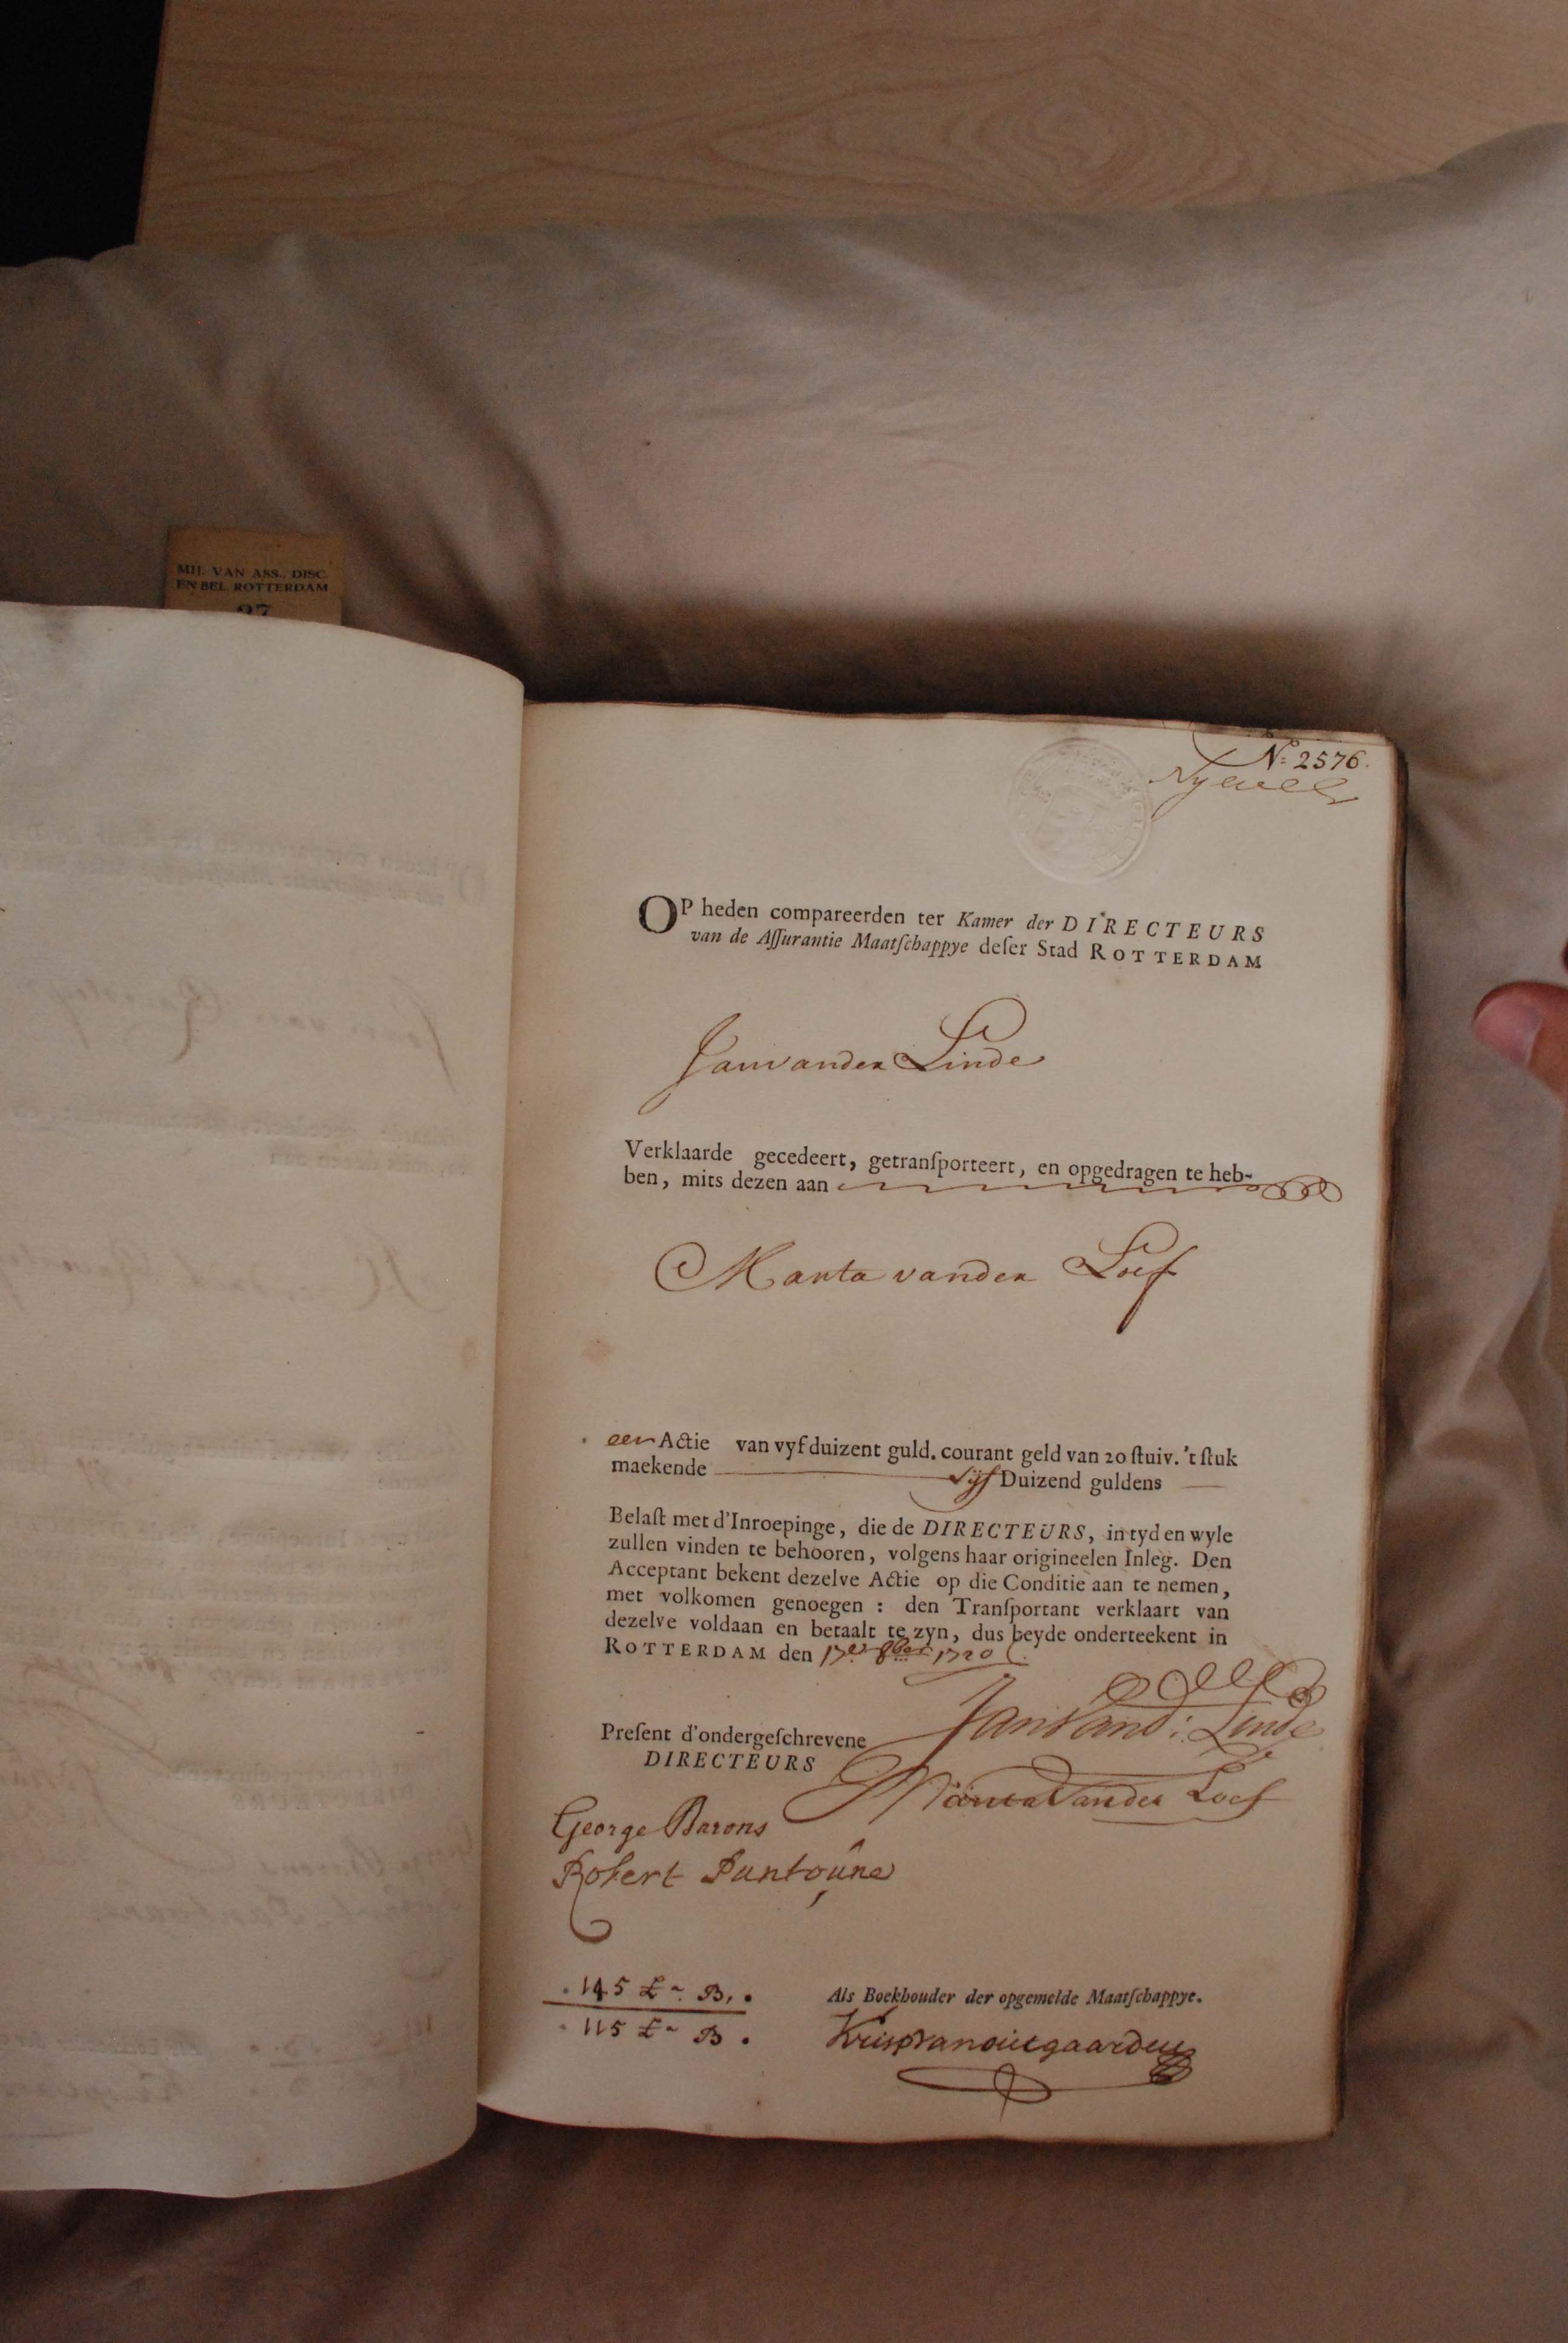 MIJ. VAN ASS., DISC.
EN BEL. ROTTERDAM
37
Nº 2576.
OP heden compareerden ter Kamer der DIRECTEURS
van de Aſſurantie Maatſchappye deſer Stad ROTTERDAM
Jan vander Linde
Verklaarde gecedeert, getranſporteert, en opgedragen te heb-
ben, mits dezen aan
Marta vander Loef
een Actie van vyf duizent guld. courant geld van 20 ſtuiv. 't ſtuk
maekende vyf Duizend guldens
Belaſt met d'Inroepinge, die de DIRECTEURS, in tyd en wyle
zullen vinden te behooren, volgens haar origineelen Inleg. Den
Acceptant bekent dezelve Actie op die Conditie aan te nemen,
met volkomen genoegen : den Tranſportant verklaart van
dezelve voldaan en betaalt te zyn, dus beyde onderteekent in
ROTTERDAM den 17e 8ber 1720
Jan Vand: Linde
Preſent d'ondergeſchrevene
DIRECTEURS
Marta Vander Loef
George Barons
Robert Puntoune
145 £ ~ B.
115 £ ~ B.
Als Boekhouder der opgemelde Maatſchappye.